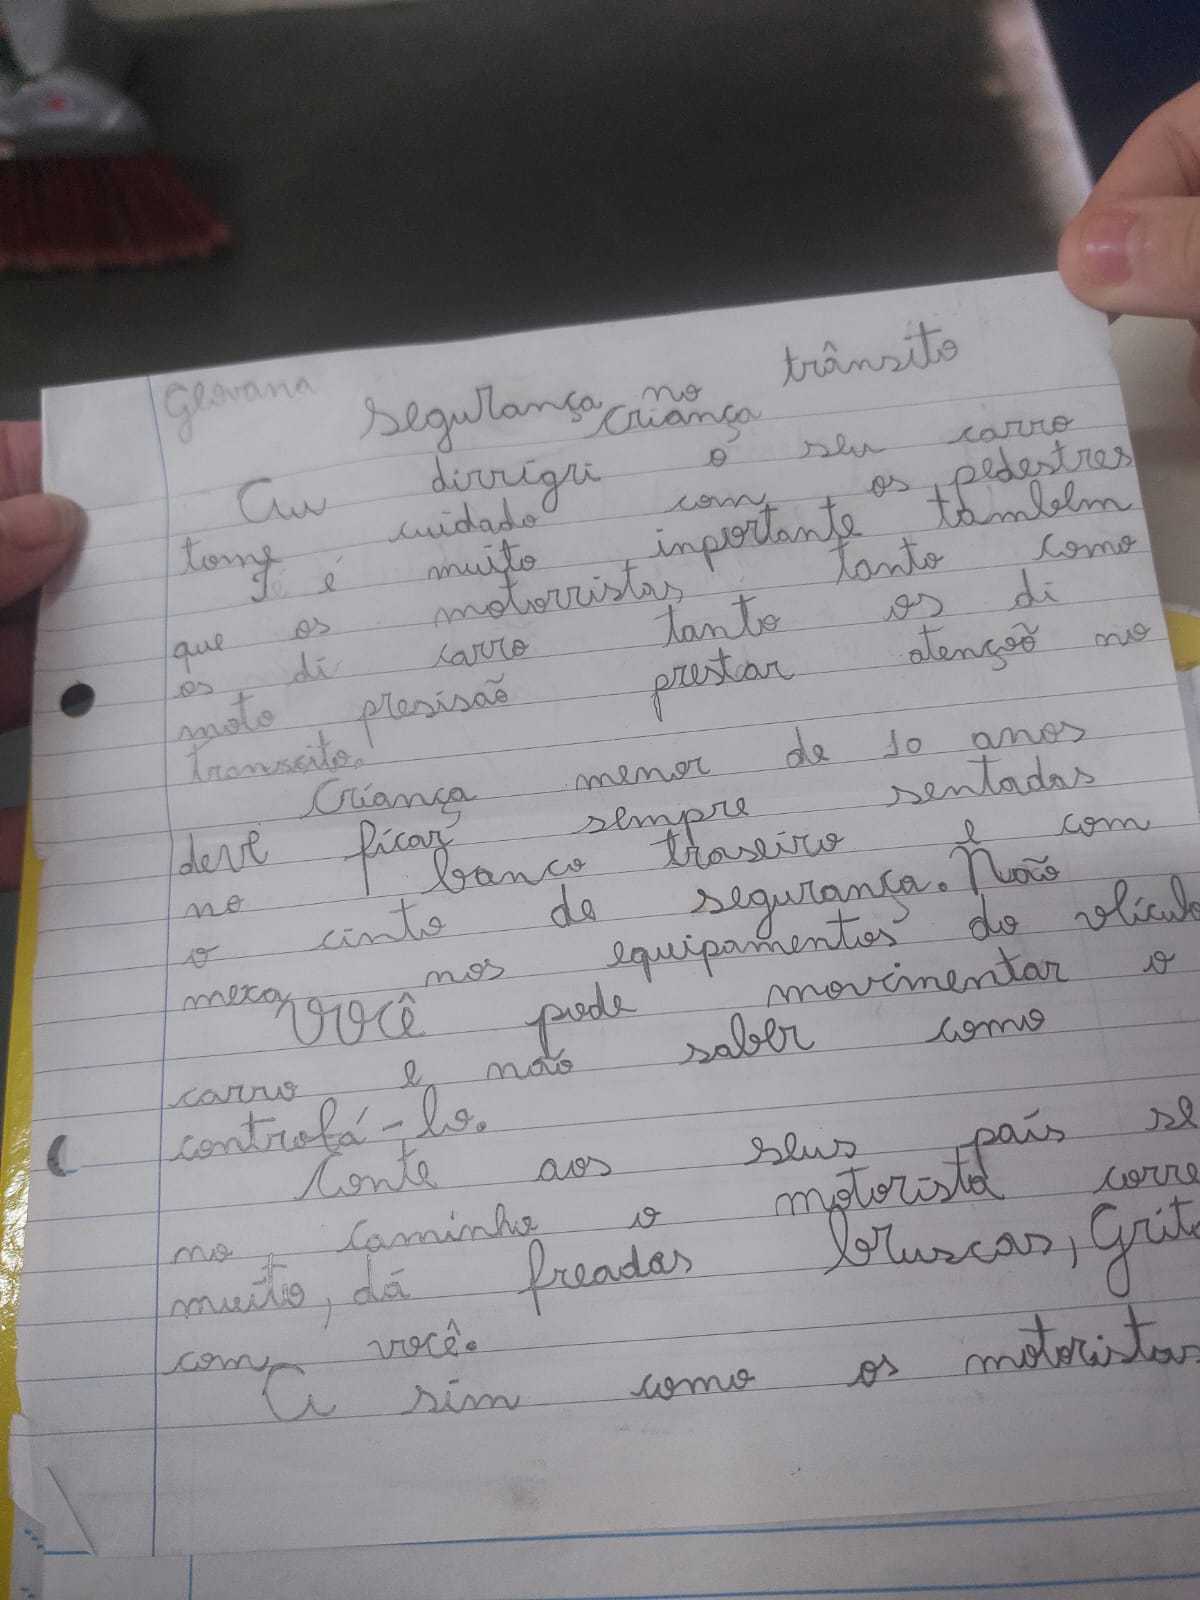 Geovana
Segurança no trânsito
Criança
Au dirrigri o seu carro
tome cuidado com os pedestres
é muito inportante tambem
que os motorristas tanto como
os di carro tanto os di
moto presisão prestar atençoõ no
transcito.
Criança menor de 10 anos
deve ficar sempre sentadas
no banco traseiro e com
o cinto de segurança. Não
mexa nos equipamentos do veículo
você pode movimentar o
carro e não saber como
controlá-lo.
Conte aos seus pais se
no caminho o motorista corre
muito, dá freadas bruscas, Grita
com você.
A sim como os motoristas